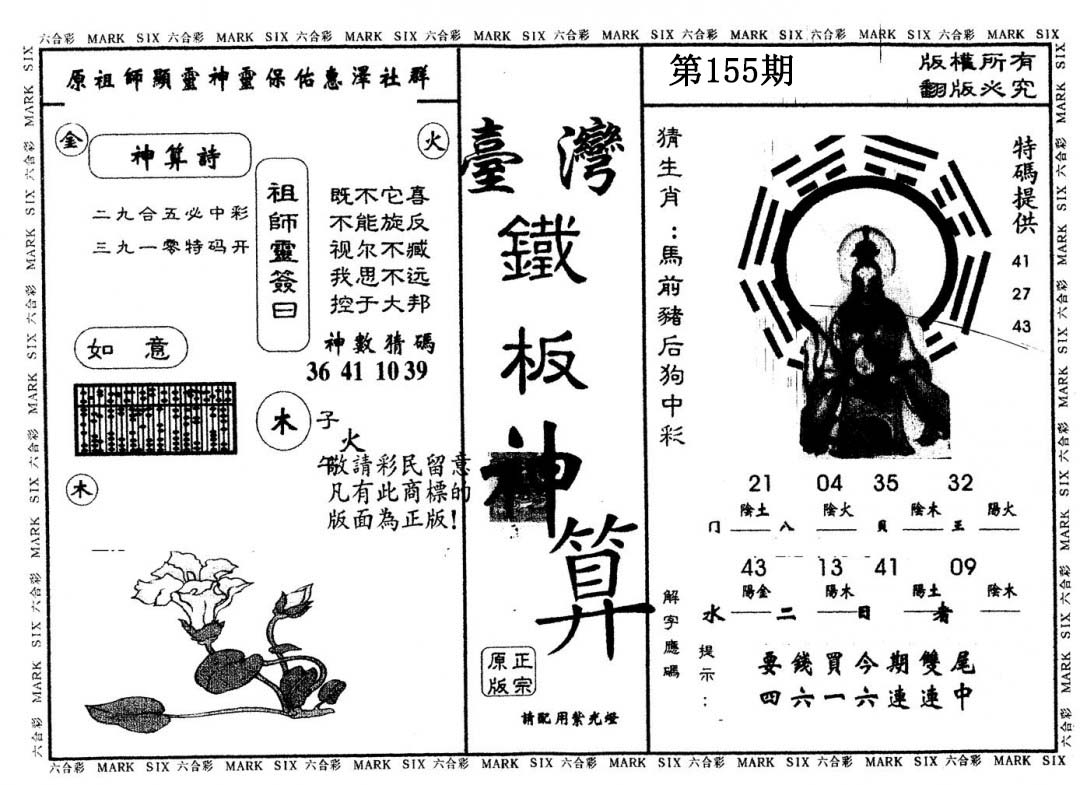 六合彩 MARK SIX 六合彩 MARK SIX 六合彩 MARK SIX 六合彩 MARK SIX 六合彩 MARK SIX 六合彩 MARK SIX 六合彩 MARK SIX 六合彩 MARK SIX
原祖師顯靈神靈保佑惠澤社群
金
火
神算詩
二九合五必中彩
三九一零特码开
祖師靈簽曰
既不它喜
不能旋反
视尔不臧
我思不远
控于大邦
神數猜碼
36 41 10 39
如 意
木
子
火
午
敬請彩民留意
凡有此商標的
版面為正版!
木
臺灣
鐵
板
神
算
正宗
原版
請配用紫光燈
第155期
版權所有
翻版必究
猜生肖:馬前豬后狗中彩
特碼提供
41
27
43
21 04 35 32
陰土 陰火 陰木 陽火
门 八 貝 王
43 13 41 09
陽金 陽木 陽土 陰木
水 二 日 者
解字應碼
提示:
要錢買今期雙尾
四六一六連連中
六合彩 MARK SIX 六合彩 MARK SIX 六合彩 MARK SIX 六合彩 MARK SIX 六合彩 MARK SIX 六合彩 MARK SIX 六合彩 MARK SIX 六合彩 MARK SIX